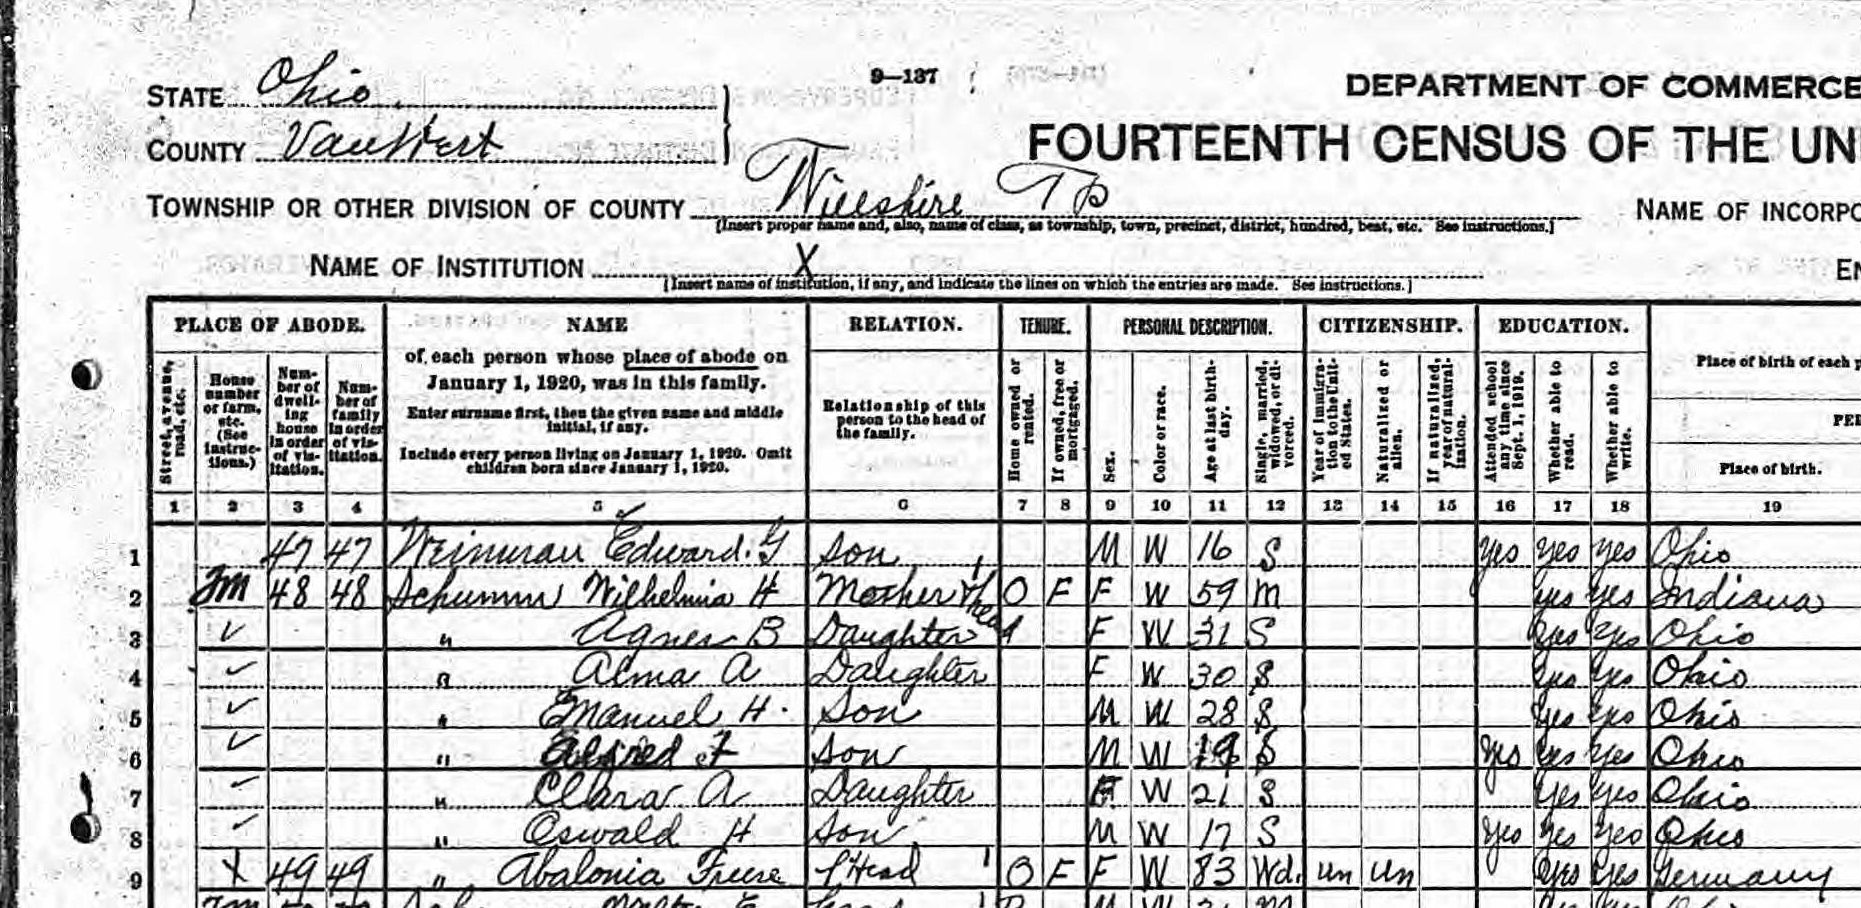 9—137
DEPARTMENT OF COMMERCE
STATE Ohio
FOURTEENTH CENSUS OF THE UN
COUNTY Van Wert
TOWNSHIP OR OTHER DIVISION OF COUNTY Willshire Tp
NAME OF INCORPO
[Insert proper name and, also, name of class, as township, town, precinct, district, hundred, beat, etc. See instructions.]
NAME OF INSTITUTION X
EN
[Insert name of institution, if any, and indicate the lines on which the entries are made. See instructions.]
PLACE OF ABODE. NAME RELATION. TENURE. PERSONAL DESCRIPTION. CITIZENSHIP. EDUCATION.
Street, avenue, road, etc.
House number or farm, etc. (See instructions.)
Number of dwelling house in order of visitation.
Number of family in order of visitation.
of each person whose place of abode on
January 1, 1920, was in this family.
Enter surname first, then the given name and middle
initial, if any.
Include every person living on January 1, 1920. Omit
children born since January 1, 1920.
Relationship of this
person to the head of
the family.
Home owned or rented.
If owned, free or mortgaged.
Sex.
Color or race.
Age at last birthday.
Single, married, widowed, or divorced.
Year of immigration to the United States.
Naturalized or alien.
If naturalized, year of naturalization.
Attended school any time since Sept. 1, 1919.
Whether able to read.
Whether able to write.
Place of birth of each p
PER
Place of birth.
1 2 3 4 5 6 7 8 9 10 11 12 13 14 15 16 17 18 19
1 47 47 Edward. G Son M W 16 S yes yes yes Ohio
2 Fm 48 48 Schumm Wilhelmia H Mother & head O F F W 59 M yes yes Indiana
3 " Agnes B Daughter F W 31 S yes yes Ohio
4 " Alma A Daughter F W 30 S yes yes Ohio
5 " Emanuel H. Son M W 28 S yes yes Ohio
6 " Son M W 19 S yes yes yes Ohio
7 " Clara A Daughter F W 21 S yes yes Ohio
8 " Oswald H Son M W 17 S yes yes yes Ohio
9 X 49 49 " Abalonia Head O F F W 83 Wd. un un yes yes Germany